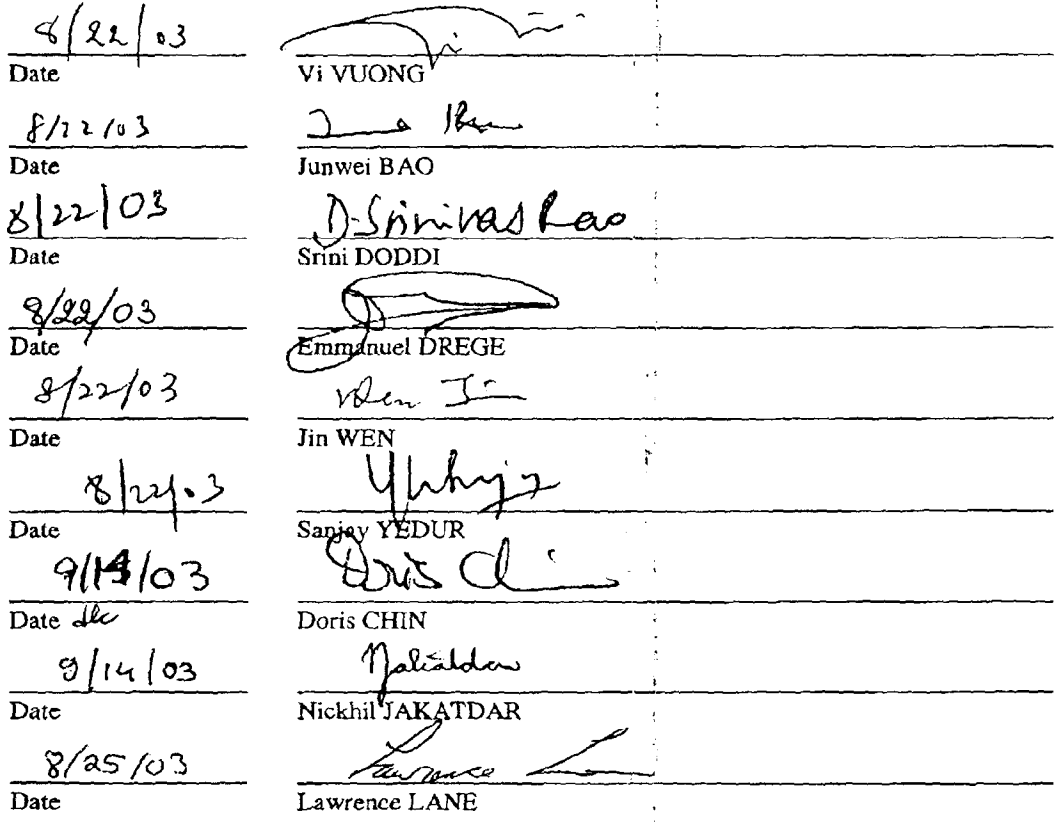 8/22/03
Date Vi VUONG
8/22/03
Date Junwei BAO
8/22/03 D. Srinivas Rao
Date Srini DODDI
8/22/03
Date Emmanuel DREGE
8/22/03 Wen Jin
Date Jin WEN
8/22/03
Date Sanjay YEDUR
9/14/03 Doris Chin
Date dlc Doris CHIN
9/14/03
Date Nickhil JAKATDAR
8/25/03 Lawrence Lane
Date Lawrence LANE